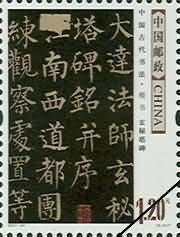 中国邮政 CHINA
中国古代书法－楷书 玄秘塔碑
大達法師玄秘
塔碑銘并序
江南西道都團
練觀察處置等
1.20元